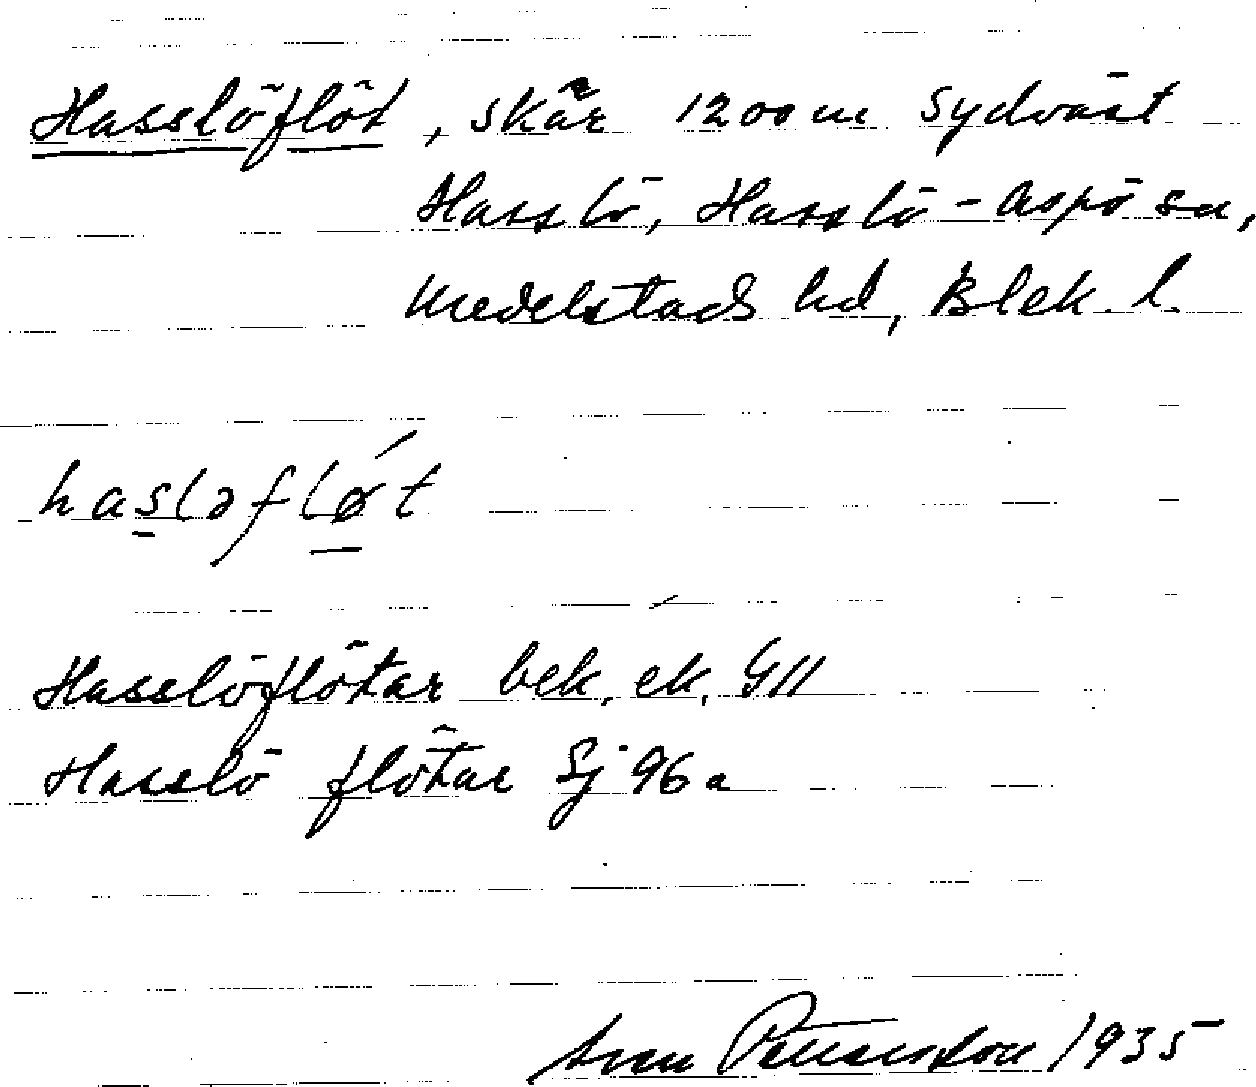 Hasslöflöt, skär 1200 m sydväst
Hasslö, Hasslö-Aspö sn,
Medelstads hd, Blek. l.
hasləflǿt
Hasslöflötar bek. ek. GII
Hasslö flötar Sj 96 a
Sven Pettersson 1935